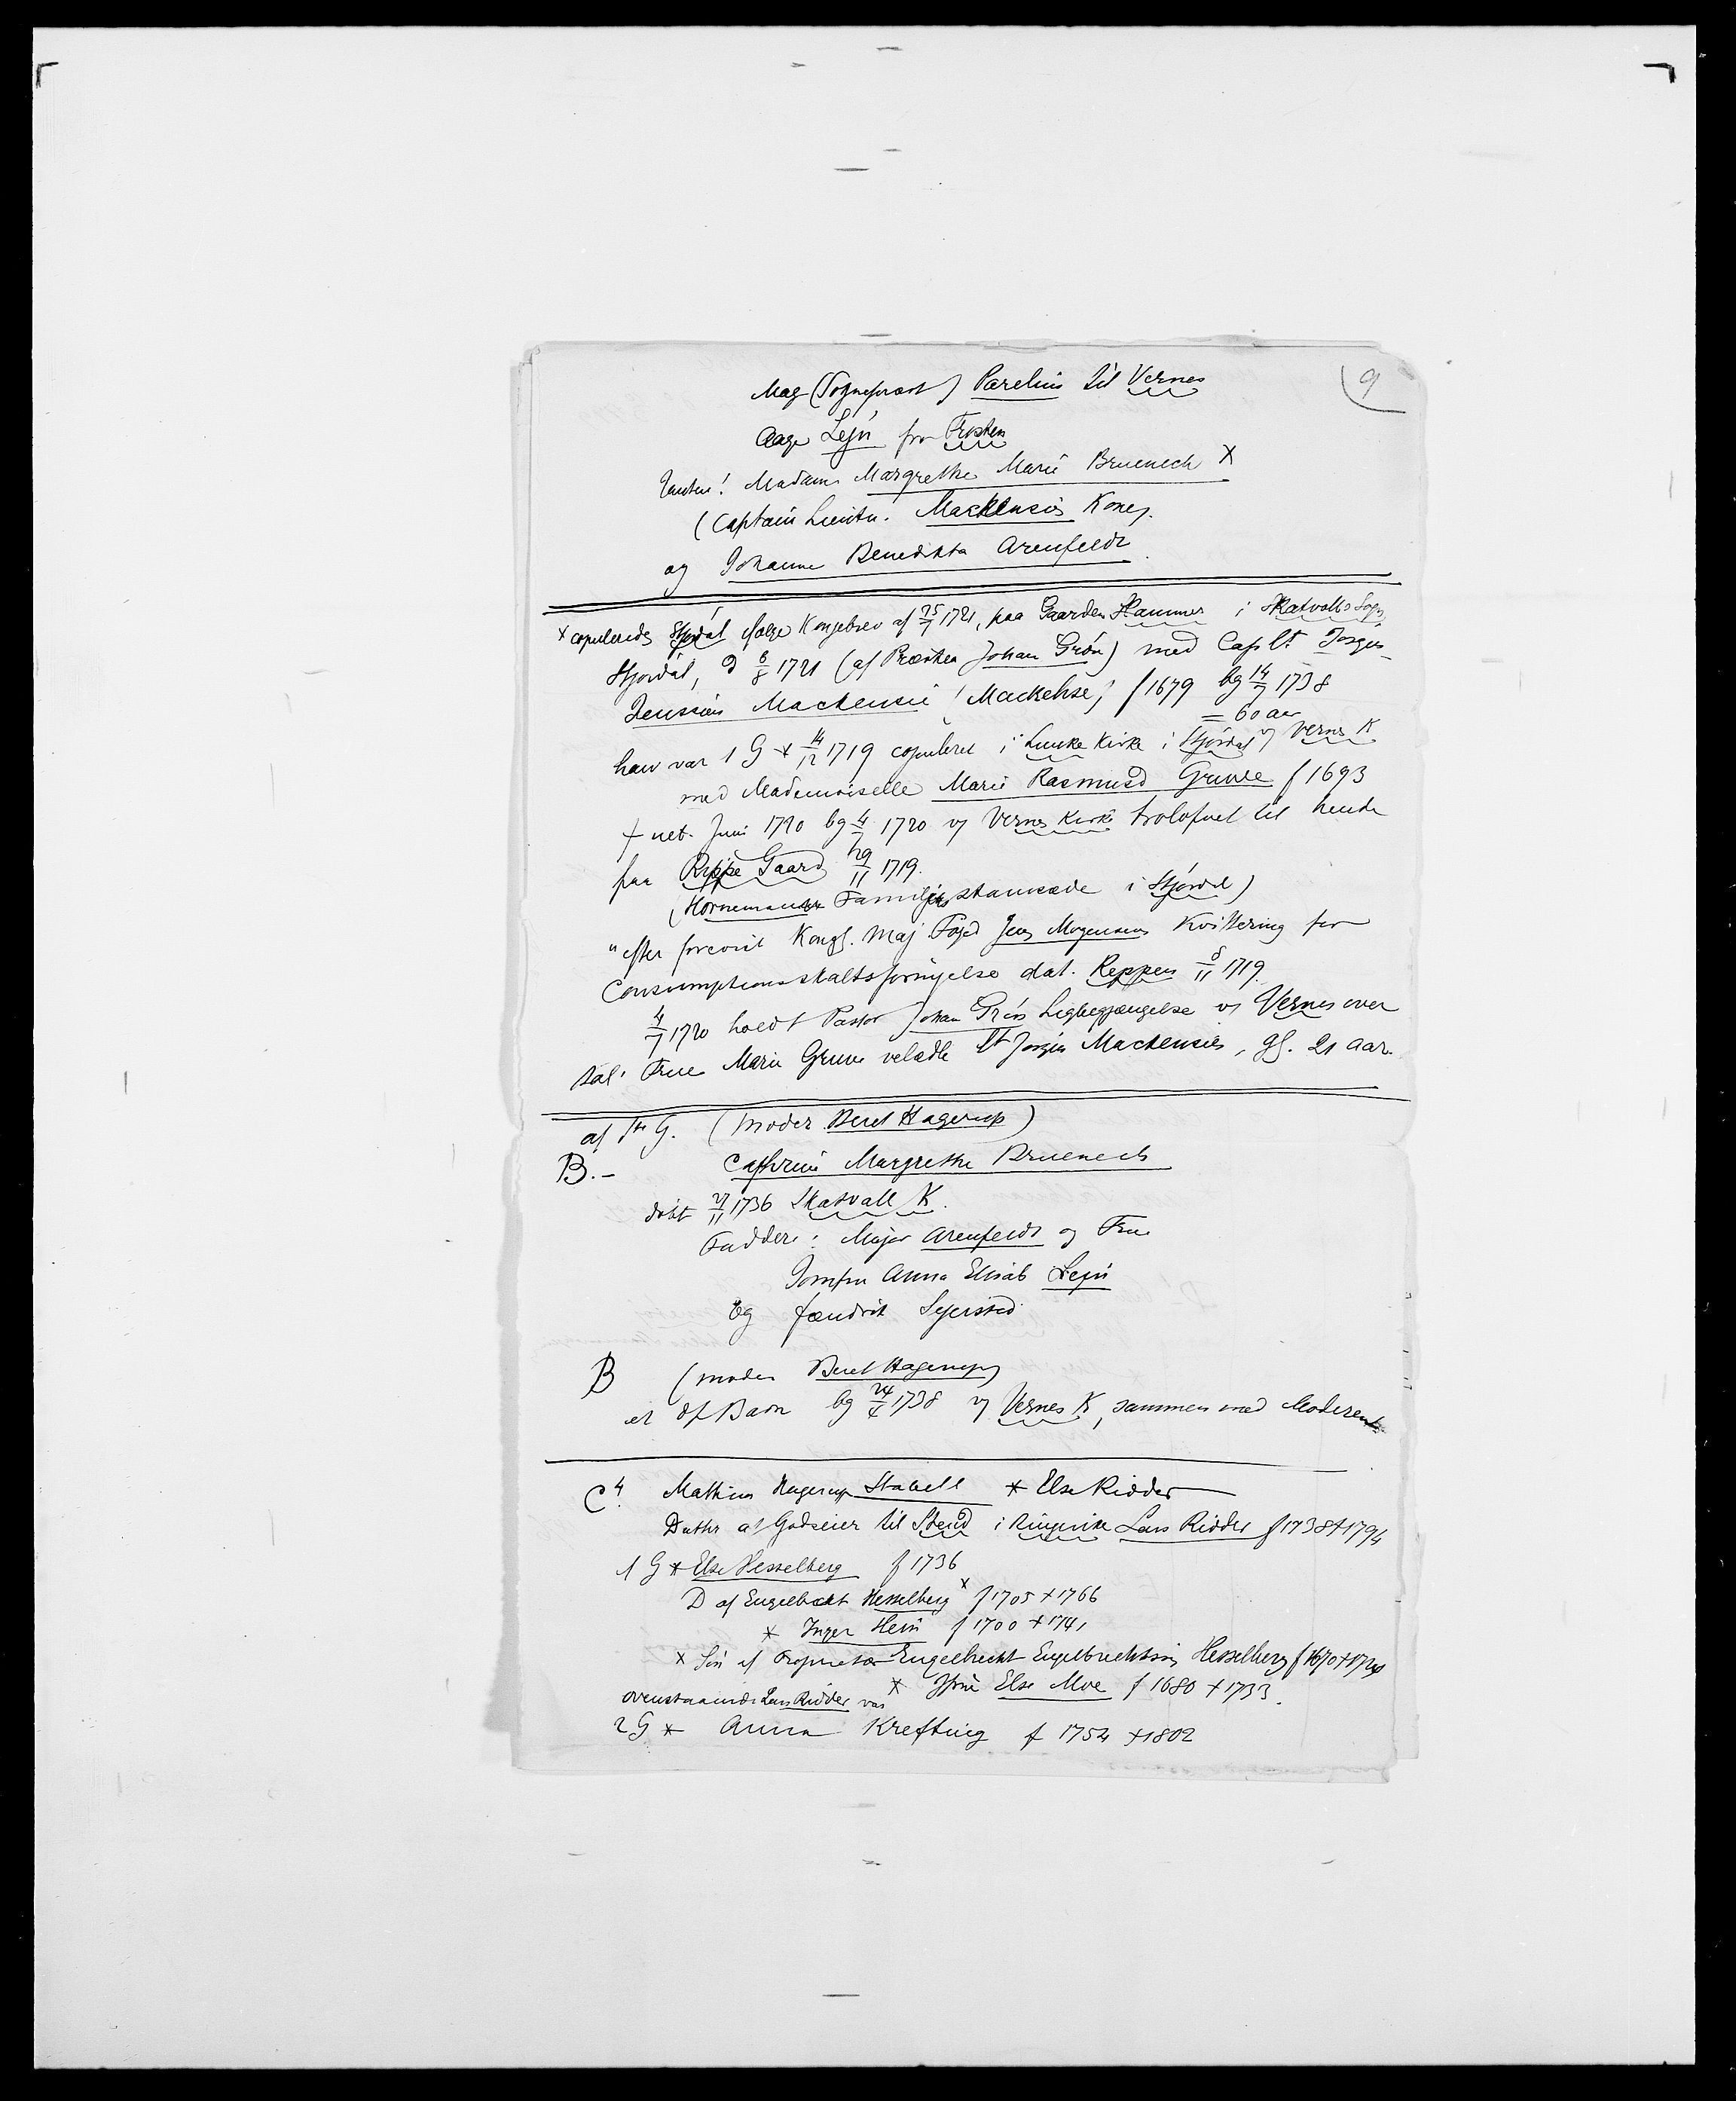 9
Mag (Sognepræst) Parelius til Vernes
Aage Lejn fra Frosten
Madam Margrethe Marie Bruenech X
(Captain Lieutn. Mackensies Kone).
og Johanne Benedikta Arenfeldt
x copulerede Stjørdal ifølge Kongebrev af 25/7 1721, paa Gaarden Hammer i Skatvolls Sogn
Stjørdal, d 6/8 1721 (af Præsten Johan Grøn) med Cap Lt Jørgen
Mackensie (Mackehse) f 1679 bg 14/7 1738
= 60 aar
han var 1 G * 14/12 1719 copuleret i Lunke Kirke i Stjørdal v Vernes K
med Mademoiselle Marie Rasmusd Gruwe f 1693
+ Juni 1720 bg 4/7 1720 v Vernes Kirke trolofvet til hende
paa Reppe Gaard 29/11 1719.
(Hornemanns Familjes stamsæde i Stjørdal)
"efter forevist Kongl. Maj Foged Jens Mogensens Kvittering for
Consumptionsskatts fornyelse dat. Reppen 8/11 1719.
4/7 1720 holdt Pastor Johan Grøn Ligbegjængelse v Vernes over
sal. Frue Marie Gruwe velædle Lt Jørgen Mackensies, gl. 21 aar.
af 1ste G. (Moder Beret Hagerup)
B. - Cathrine Margrethe Bruenech
døbt 27/11 1736 Skatvoll K.
Faddere: Major Arenfeldt og Frue
Jomfru Anna Elisab Lejn
og fændrik Sejersted
B (moder Beret Hagerup)
et df Barn bg 24/4 1738 v Vernes K, sammen med Moderen
C 4. Mathias Hagerup Stabell * Else Ridder
Datter af Godseier til Steud i Ringerike Lars Ridder f 1738 + 1794
1 G * Else Hesselberg f 1736
D af Engelbrekt Hesselberg x f 1705 + 1766
* Inger Hein f 1700 + 1741
x Søn af Proprietær Engelbrecht Engelbrechtsøn Hesselberg f 1670 +
* Else Moe f 1680 + 1733.
ovenstaaende Lars Ridder var
2 G * Anna Krefting f 1754 + 1802